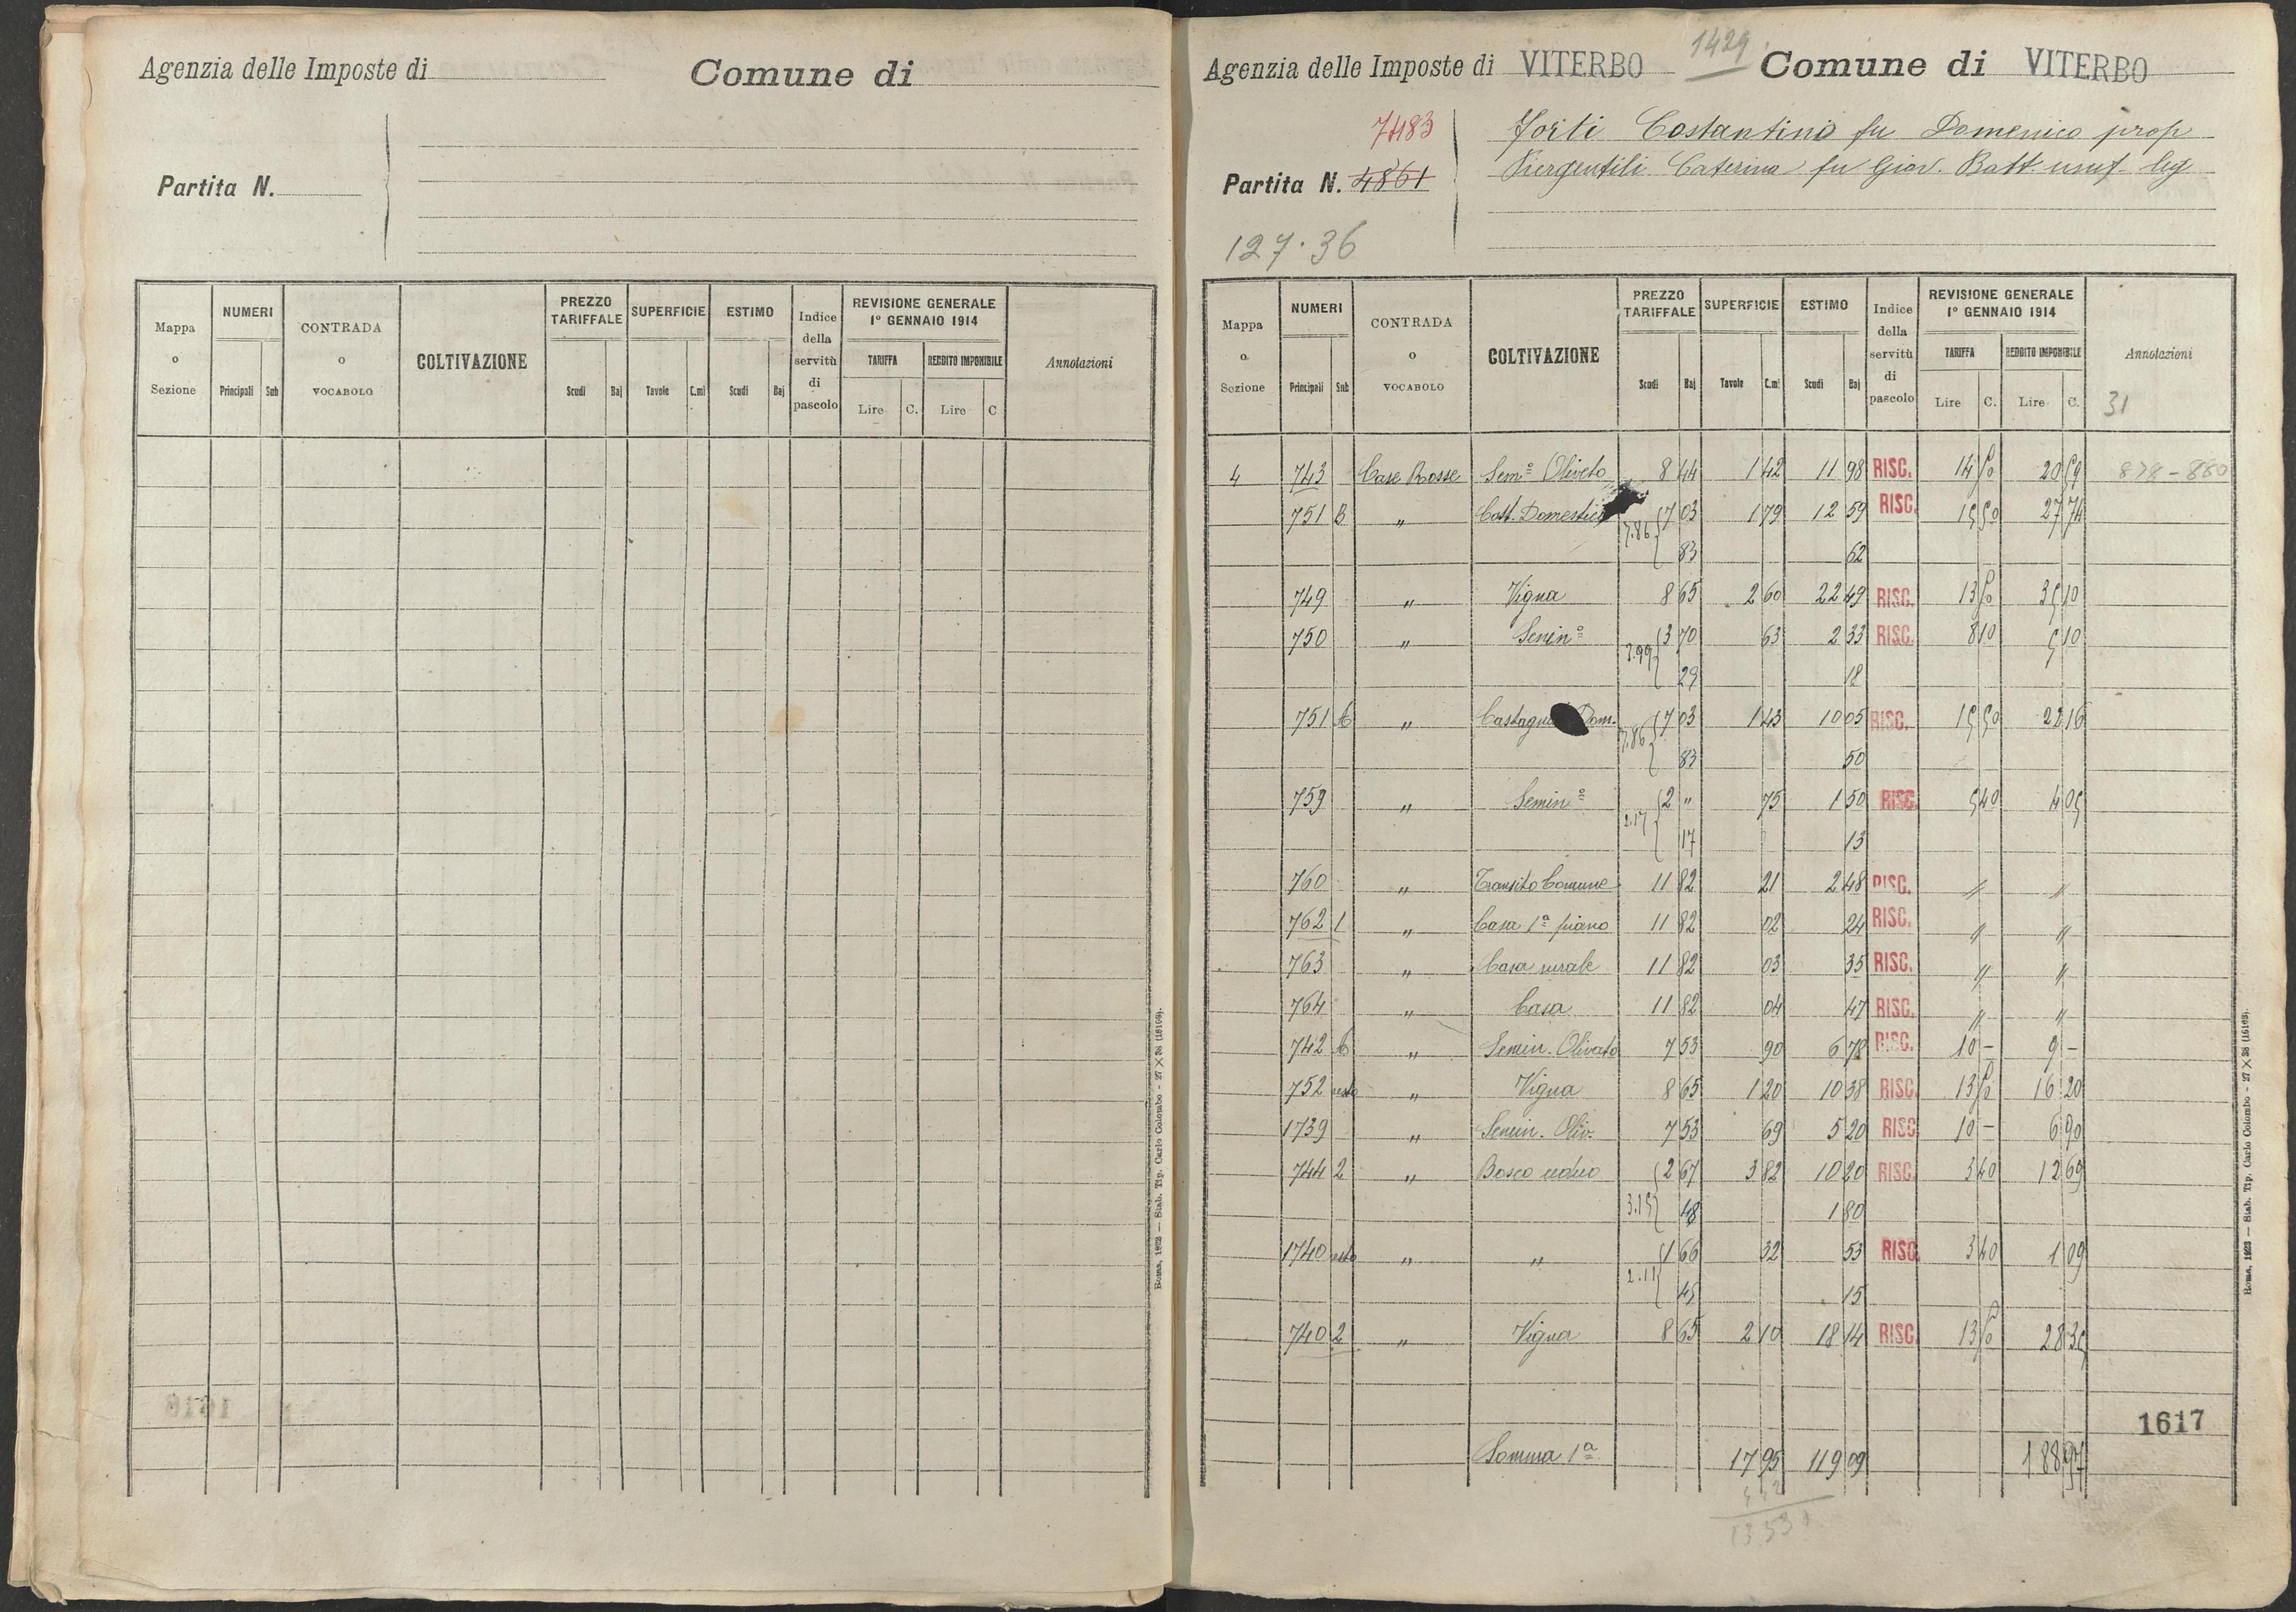 Agenzia delle Imposte di Comune di
Partita N.
Mappa o Sezione NUMERI Principali Sub CONTRADA o VOCABOLO COLTIVAZIONE PREZZO TARIFFALE Scudi Baj SUPERFICIE Tavole C.mi ESTIMO Scudi Baj Indice della servitù di pascolo REVISIONE GENERALE 1º GENNAIO 1914 TARIFFA Lire C. REDDITO IMPONIBILE Lire C Annotazioni
Roma, 1923 — Stab. Tip. Carlo Colombo - 27 X 36 (16103).
1429
Agenzia delle Imposte di VITERBO Comune di VITERBO
7483
Forti Costantino fu Domenico prop
Partita N. 4861 Piergentili Caterina fu Giov. Batt. usuf. leg
127.36
Mappa o Sezione NUMERI Principali Sub CONTRADA o VOCABOLO COLTIVAZIONE PREZZO TARIFFALE Scudi Baj SUPERFICIE Tavole C.mi ESTIMO Scudi Baj Indice della servitù di pascolo REVISIONE GENERALE 1º GENNAIO 1914 TARIFFA Lire C. REDDITO IMPONIBILE Lire C. Annotazioni
31
4 743 Case Rosse Semº Oliveto 8 44 1 42 11 98 RISC. 14 50 20 59 878-880
751 B " Cast. Domestico 7 03 1 79 12 59 RISC. 15 50 27 74
7.86 83 62
749 " Vigna 8 65 2 60 22 49 RISC. 13 50 35 10
750 " Seminº 3 70 63 2 33 RISC. 8 10 5 10
3.99 29 18
751 A " Dom. 7 03 1 43 10 05 RISC. 15 50 22 16
7.86 83 50
759 " Seminº 2 " 75 1 50 RISC. 5 40 4 05
2.17 17 13
760 " Transito Comune 11 82 21 2 48 RISC. " "
762 1 " Casa 1ª piano 11 82 02 24 RISC. " "
763 " Casa rurale 11 82 03 35 RISC. " "
764 " Casa 11 82 04 47 RISC. " "
742 A " Semin. Olivato 7 53 90 6 78 RISC. 10 - 9 -
752 resto " Vigna 8 65 1 20 10 38 RISC. 13 50 16 20
1739 " Semin. Oliv. 7 53 69 5 20 RISC 10 - 6 90
744 2 " Bosco ceduo 2 67 3 82 10 20 RISC. 3 40 12 69
3.15 48 1 80
1740 resto " " 1 66 32 53 RISC 3 40 1 09
2.11 45 15
740 2 " Vigna 8 65 2 10 18 14 RISC. 13 50 28 35
1617
Somma 1ª 17 95 119 09 188 97
4 42
13 53
Roma, 1923 — Stab. Tip. Carlo Colombo - 27 X 36 (16103).